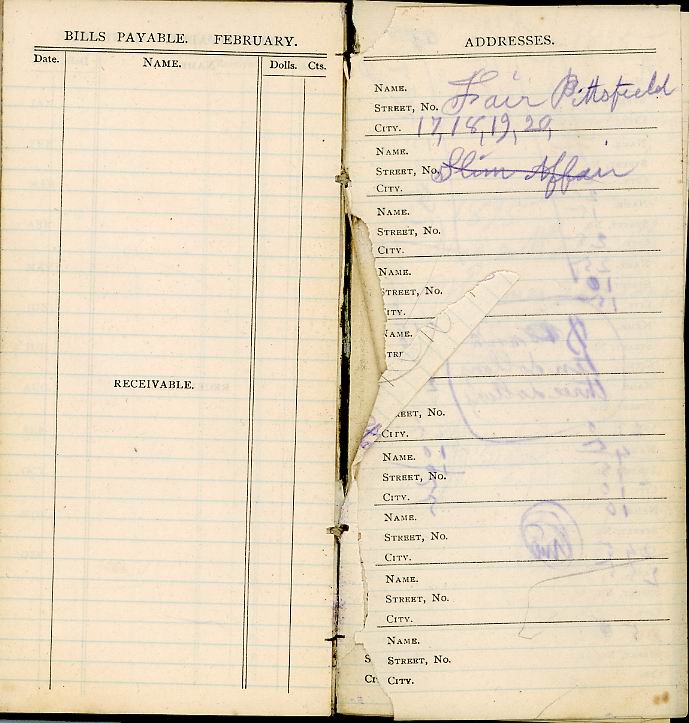 BILLS PAYABLE. FEBRUARY.
Date. NAME. Dolls. Cts.
RECEIVABLE.
ADDRESSES.
NAME.
STREET, NO. Fair Pittsfield
CITY. 17, 18, 19, 20,
NAME.
STREET, NO. Slim Affair
CITY.
NAME.
STREET, NO.
CITY.
NAME.
STREET, NO.
CITY.
NAME.
STR
REET, NO.
CITY.
NAME.
STREET, NO.
CITY.
NAME.
STREET, NO.
CITY.
NAME.
STREET, NO.
CITY.
NAME.
S STREET, NO.
CI CITY.